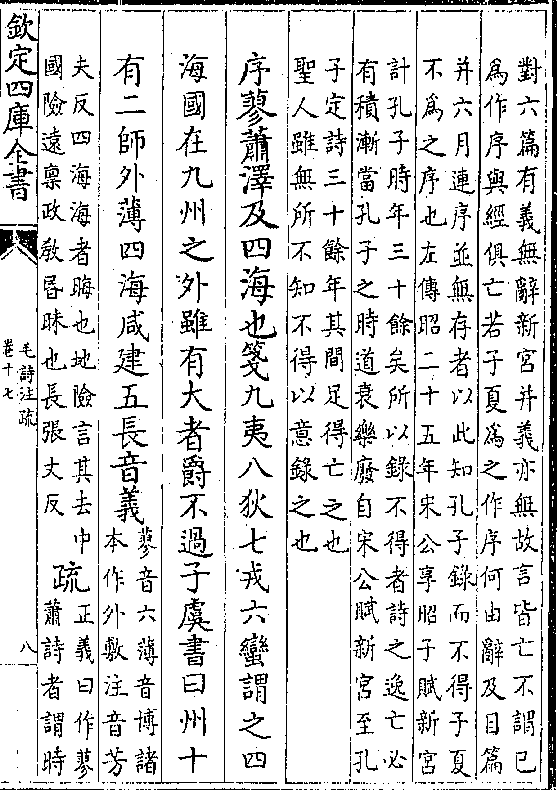 對六篇有義無辭新宮并義亦無故言皆亡不謂已
爲作序與經俱亡若子夏爲之作序何由辭及目篇
并六月連序並無存者以此知孔子錄而不得子夏
不爲之序也左傳昭二十五年宋公享昭子賦新宮
計孔子時年三十餘矣所以錄不得者詩之逸亡必
有積漸當孔子之時道衰樂廢自宋公賦新宮至孔
子定詩三十餘年其間足得亡之也
聖人雖無所不知不得以意錄之也
序蓼蕭澤及四海也箋九夷八狄七戎六蠻謂之四
海國在九州之外雖有大者爵不過子虞書曰州十
有二師外薄四海咸建五長音義
蓼音六薄音博諸
本作外敷注音芳
夫反四海海者晦也地險言其去中
國險遠禀政教昏昧也長張丈反
疏
正義曰作蓼
蕭詩者謂時
欽定四庫全書
毛詩注疏
卷十七
八